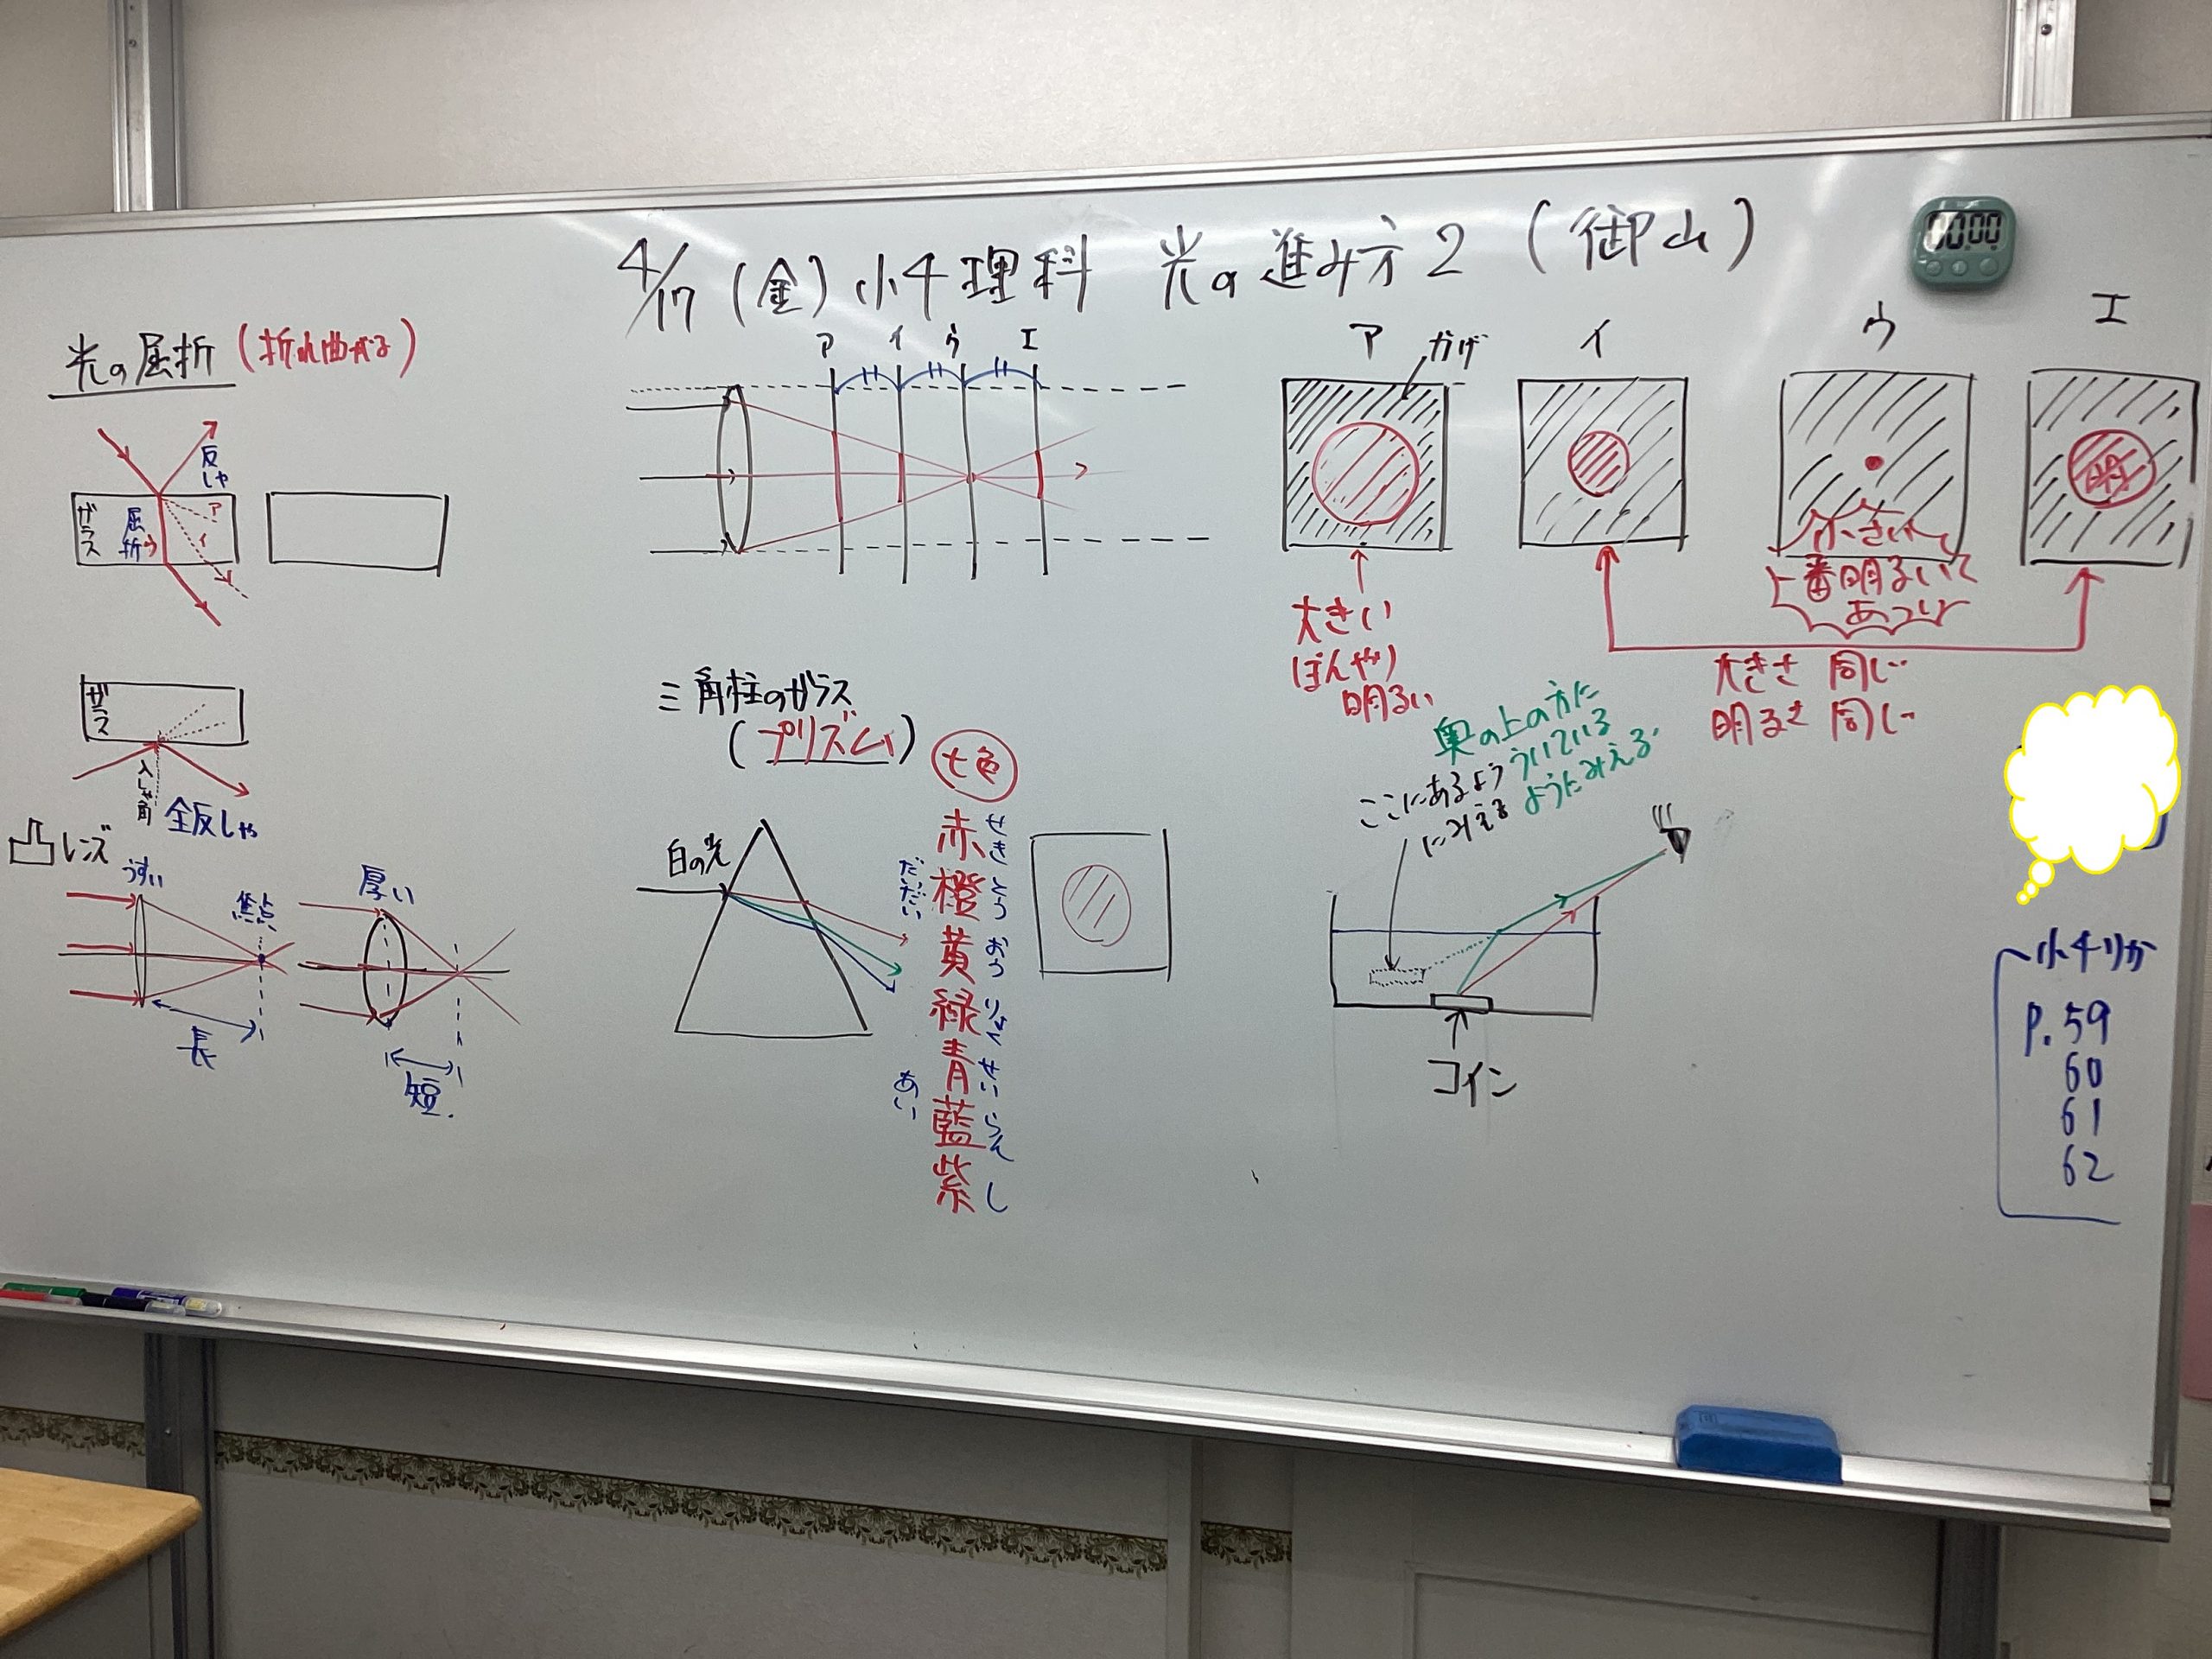 4/17(金)小4理科 光の進み方2(御山)
00:00
光の屈折(折れ曲がる)
反しゃ
ガラス
屈折
ア
イ
ウ
ガラス
入しゃ角
全反しゃ
凸レンズ
うすい
焦点
長
厚い
短
ア イ ウ エ
三角柱のガラス
(プリズム)
七色
白の光
赤 せき
橙 とう だいだい
黄 おう
緑 りょく
青 せい
藍 らん あい
紫 し
ア イ ウ エ
かげ
大きい
ぼんやり
明るい
小さい
一番明るい
あつい
明
大きさ 同じ
明るさ 同じ
奥の上の方に
ういている
ようにみえる
ここにあるよう
にみえる
コイン
小4りか
P.59
60
61
62